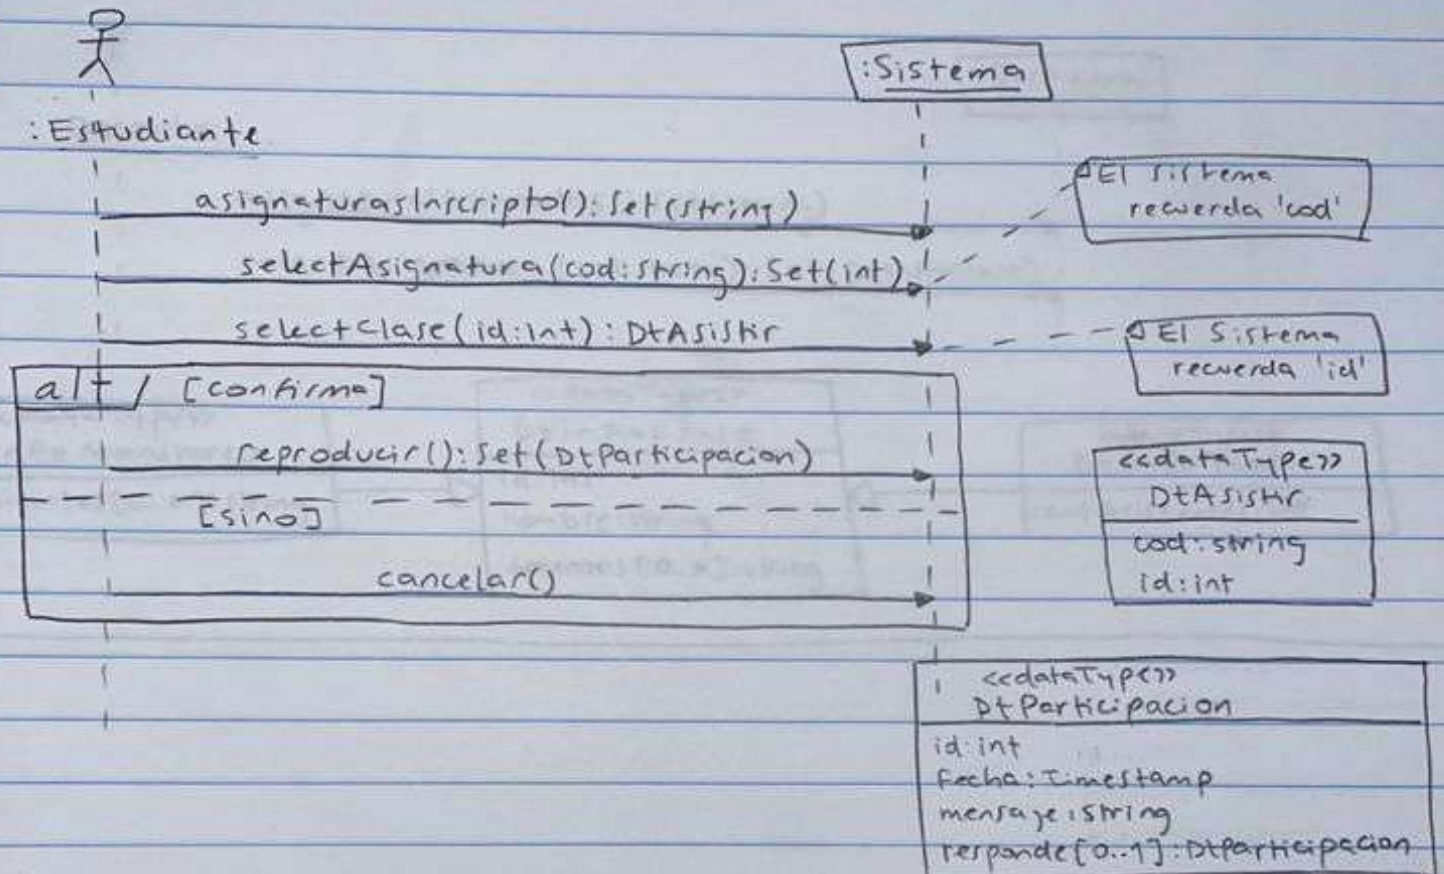 :Sistema
:Estudiante
asignaturasInscripto(): Set(string)
El sistema
recuerda 'cod'
selectAsignatura(cod: string): Set(int)
selectClase(id: int): DtAsistir
El Sistema
recuerda 'id'
alt [confirma]
reproducir(): Set(DtParticipacion)
[sino]
cancelar()
<<dataType>>
DtAsistir
cod: string
id: int
<<dataType>>
DtParticipacion
id: int
fecha: Timestamp
mensaje: string
responde[0..1]: DtParticipacion